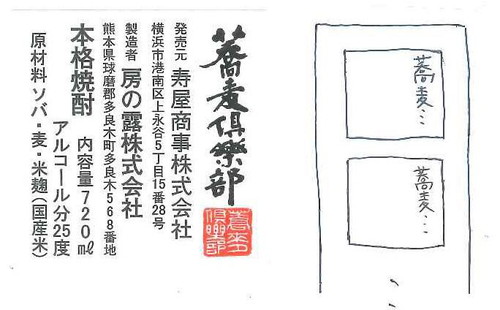 蕎麦倶楽部
蕎麦
倶楽部
発売元 寿屋商事株式会社
横浜市港南区上永谷5丁目15番28号
製造者 房の露株式会社
熊本県球磨郡多良木町多良木568番地
本格焼酎 内容量720㎖
アルコール分25度
原材料 ソバ・麦・米麹(国産米)
蕎麦…
蕎麦…